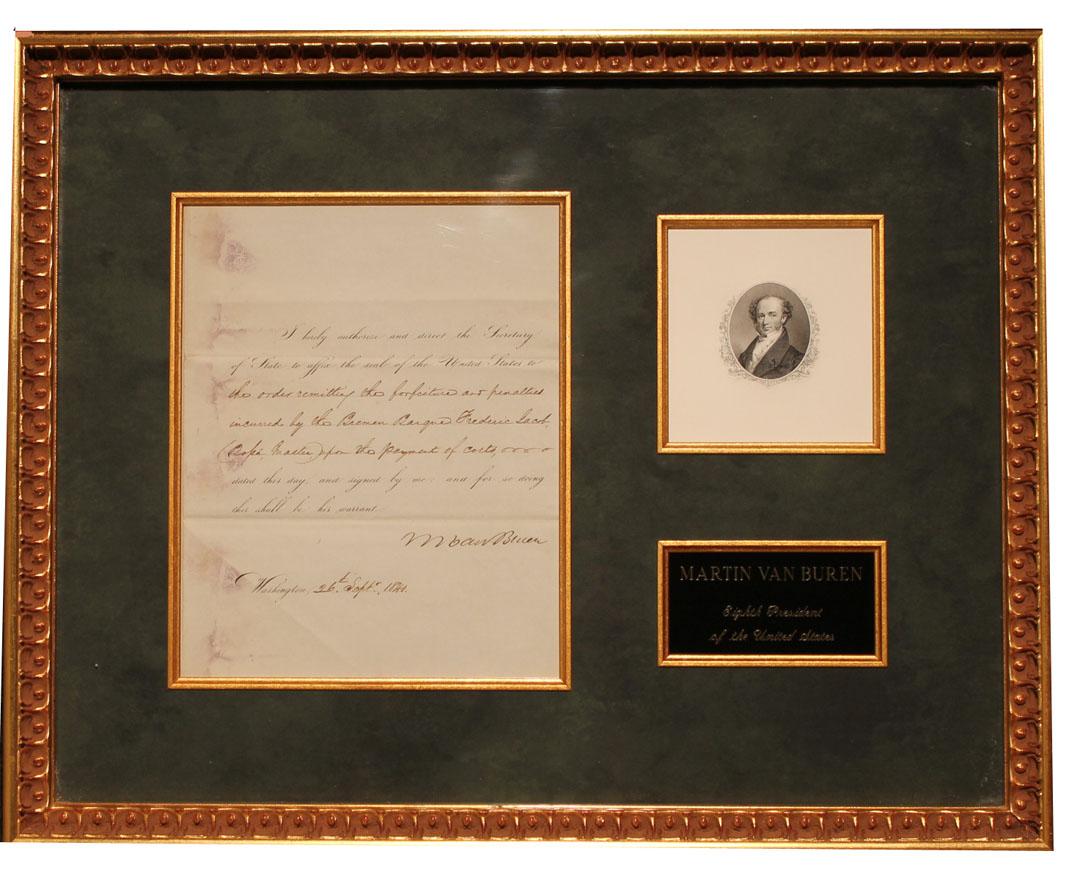 I hereby authorize and direct the Secretary
of State to affix the seal of the United States to
the order remitting the forfeiture and penalties
incurred by the Bremen Barque Frederic Jacob,
Master) upon the payment of costs,
dated this day, and signed by me: and for so doing
this shall be his warrant.
M Van Buren
Washington, 26th Septr. 1840.
MARTIN VAN BUREN
Eighth President
of the United States